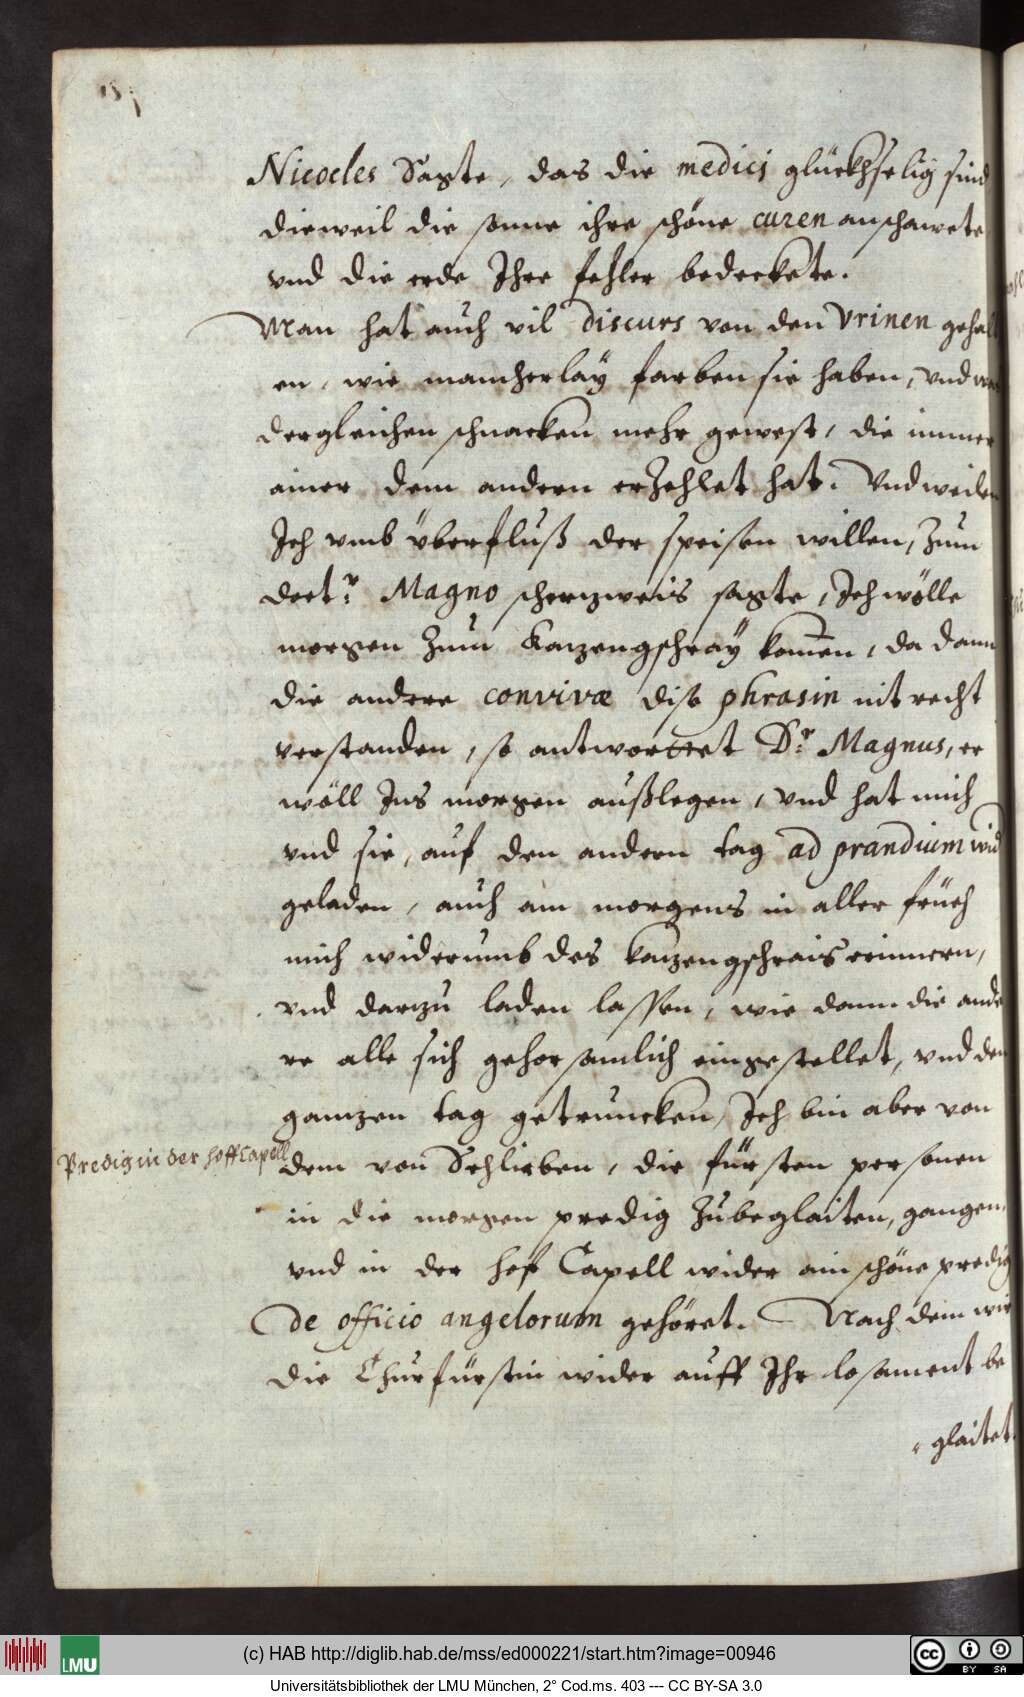 Nicocles Sagte, das die medicj glückhselig sind
dieweil die sonne ihre schöne curen anschawete
vnd die erde Ihre fehler bedeckete.
Man hat auch vil discurs von den Vrinen gehal
en, wie mancherlay farben sie haben, vnd
dergleichen schnacken mehr gewest, die immer
ainer dem andern erZehlet hat. Vnd weilen
Ich vmb überfluß der speisen willen, Zum
doctr: Magno scherzweis sagte, Ich wölle
morgen Zum Kazengschray komen, da dann
die andere convivæ dise phrasin nit recht
verstanden, so antwortet Dr: Magnus, er
wöll Ins morgen außlegen, vnd hat mich
vnd sie, auf den andern tag ad prandium wid
geladen, auch am morgens in aller früeh
mich widerumb des kazengschrais erinnern,
vnd darzu laden lassen, wie dann die ande
re alle sich gehorsamlich eingestellet, vnd den
ganzen tag getruncken, Ich bin aber von
Predig in der hoffCapell
dem von Schlieben, die fürsten personen
in die morgen predig Zubeglaiten, gangen,
vnd in der hof Capell wider ain schöne predig
De officio angelorum gehöret. Nach dem wir
die Churfürstin wider auff Ihr losament be
glaitet.
(c) HAB http://diglib.hab.de/mss/ed000221/start.htm?image=00946
LMU
CC BY SA
Universitätsbibliothek der LMU München, 2° Cod.ms. 403 --- CC BY-SA 3.0